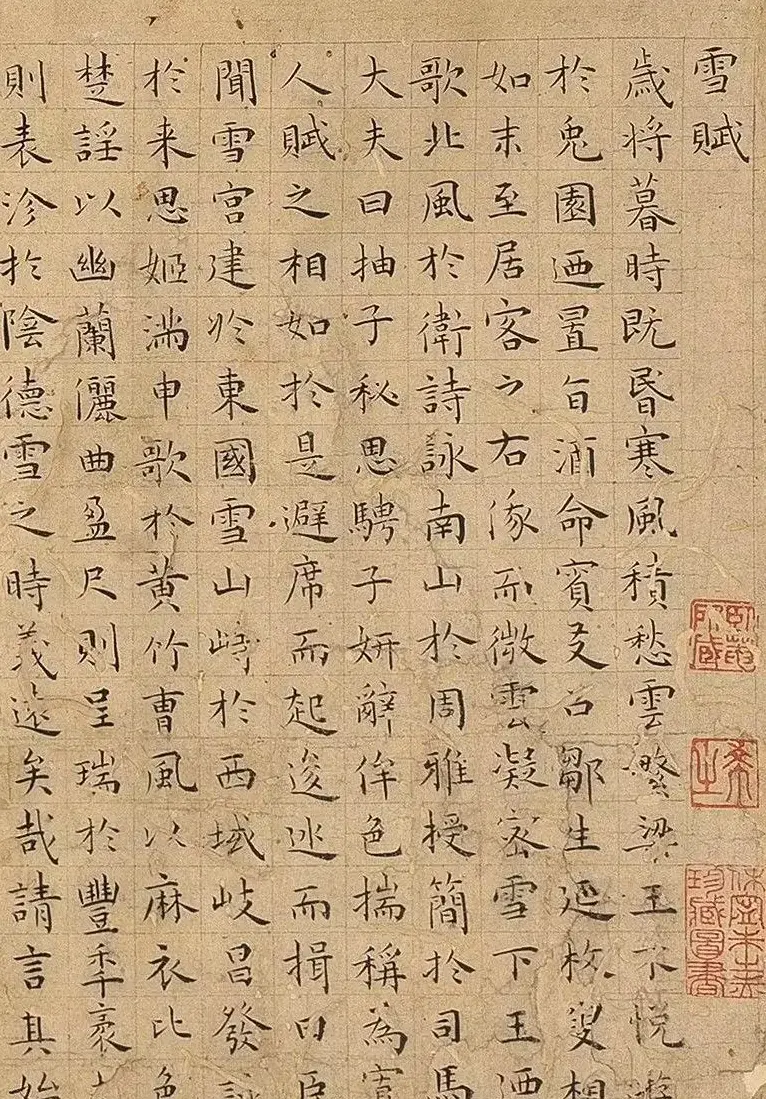 雪賦
歲將暮時既昏寒風積愁雲繁梁王不悅遊
於兔園迺置旨酒命賓友召鄒生延枚叟相
如末至居客之右俄而微雲凝密雪下王迺
歌北風於衛詩詠南山於周雅授簡於司馬
大夫曰抽子秘思騁子妍辭侔色揣稱為寡
人賦之相如於是避席而起逡巡而揖曰臣
聞雪宮建於東國雪山峙於西域岐昌發詠
於来思姬滿申歌於黃竹曹風以麻衣比色
楚謠以幽蘭儷曲盈尺則呈瑞於豐年袤丈
則表沴於陰德雪之時義遠矣哉請言其始